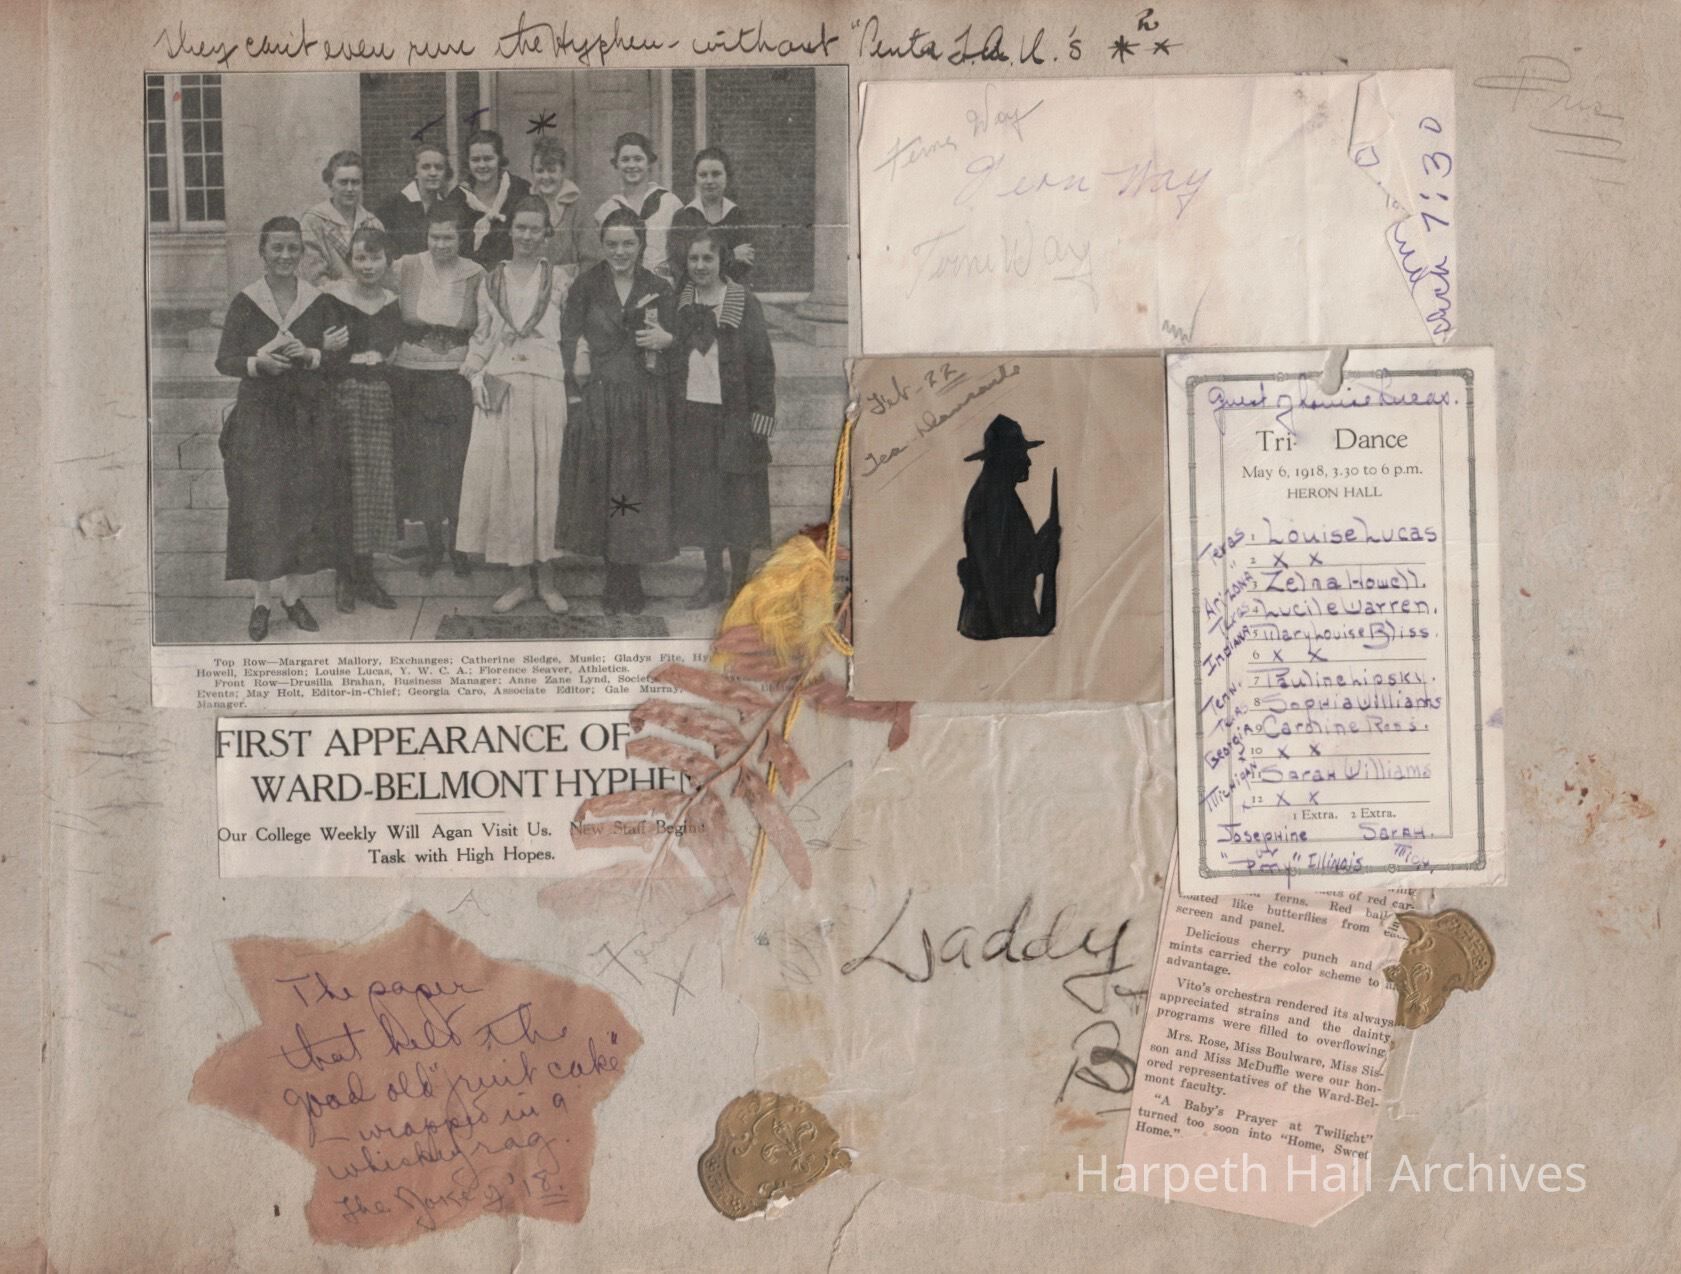 They can't even run the Hyphen - without "Penta T.A.U.'s
Top Row—Margaret Mallory, Exchanges; Catherine Sledge, Music; Gladys Fite, Hy
Howell, Expression; Louise Lucas, Y. W. C. A.; Florence Seaver, Athletics.
Front Row—Drusilla Brahan, Business Manager; Anne Zane Lynd, Society
Events; May Holt, Editor-in-Chief; Georgia Caro, Associate Editor; Gale Murray,
Manager.
FIRST APPEARANCE OF
WARD-BELMONT HYPHEN
Our College Weekly Will Agan Visit Us. New Staff Begins
Task with High Hopes.
The paper
that held the
good old "fruit cake"
– wrapped in a
whiskey rag.
The Joke of '18.
Way
Fern Way
7:30
Feb - 22
Tea Dansante
Guest of Louise Lucas.
Tri- Dance
May 6, 1918, 3.30 to 6 p.m.
HERON HALL
Texas 1 Louise Lucas
" 2 X X
Arizona 3 Zelna Howell.
Texas 4 Lucile Warren.
Indiana 5 Mary Louise Bliss.
6 X X
Tenn. 7 Pauline Lipsky.
Texas 8 Sophia Williams
Georgia 9 Caroline Ross.
X 10 X X
Michigan 11 Sarah Williams
X 12 X X
1 Extra. 2 Extra.
Josephine Sarah.
or
"Pony" Illinois Mich.
Daddy
of red car-
ferns. Red
oated like butterflies from
screen and panel.
Delicious cherry punch and
mints carried the color scheme to
advantage.
Vito's orchestra rendered its always
appreciated strains and the dainty
programs were filled to overflowing.
Mrs. Rose, Miss Boulware, Miss Sis-
son and Miss McDuffie were our hon-
ored representatives of the Ward-Bel-
mont faculty.
"A Baby's Prayer at Twilight"
turned too soon into "Home, Sweet
Home."
Harpeth Hall Archives